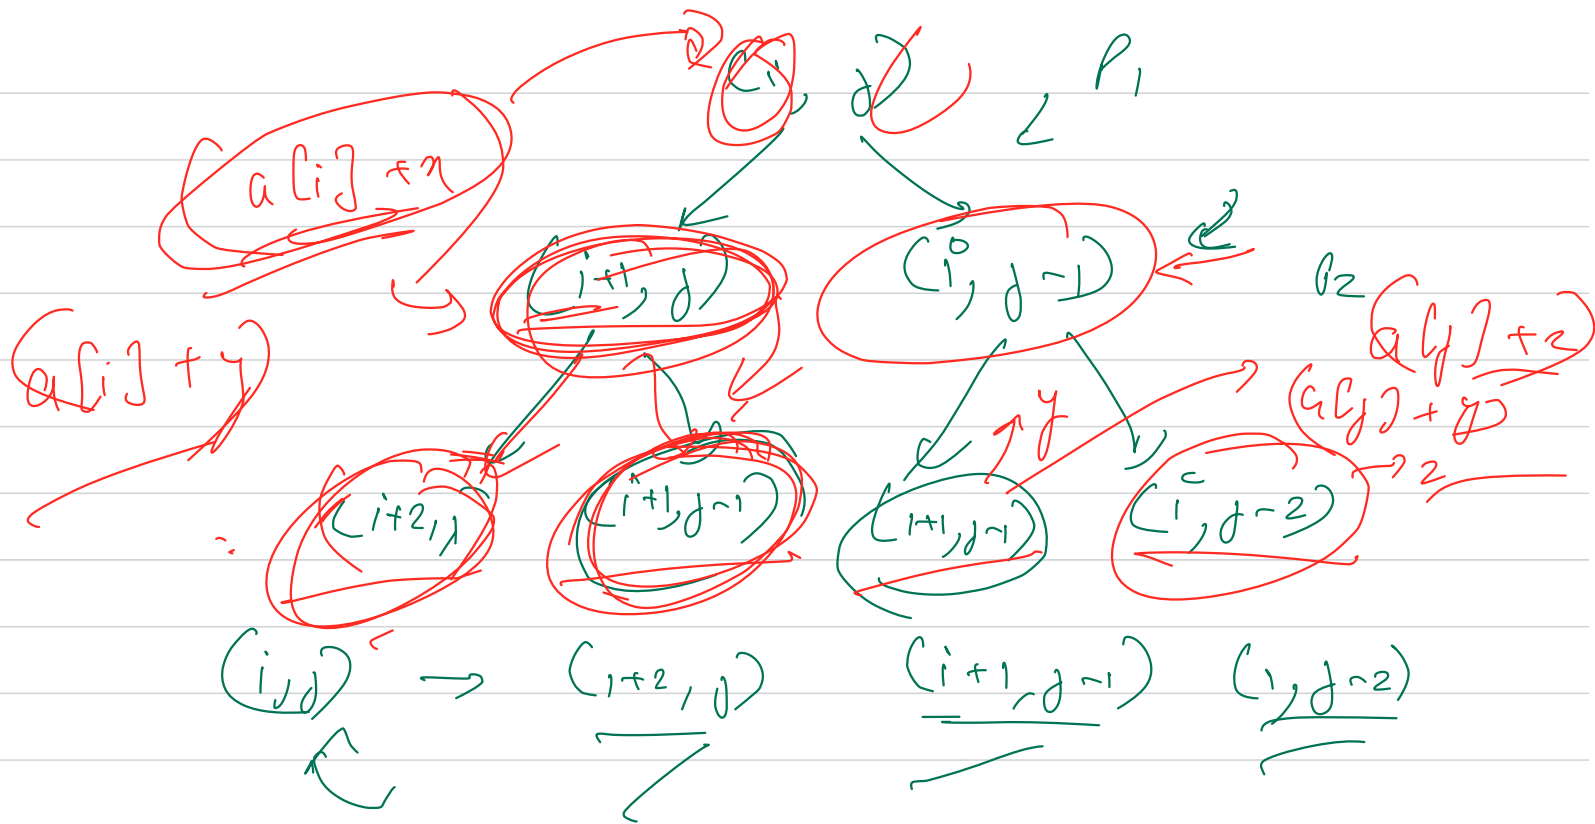 (i, j) P1
a[i] + x
(i+1, j) (i, j-1) P2
a[i] + y a[j] + z
y a[j] + y
(i+2, j) (i+1, j-1) (i+1, j-1) (i, j-2) z
(i, j) → (i+2, j) (i+1, j-1) (i, j-2)